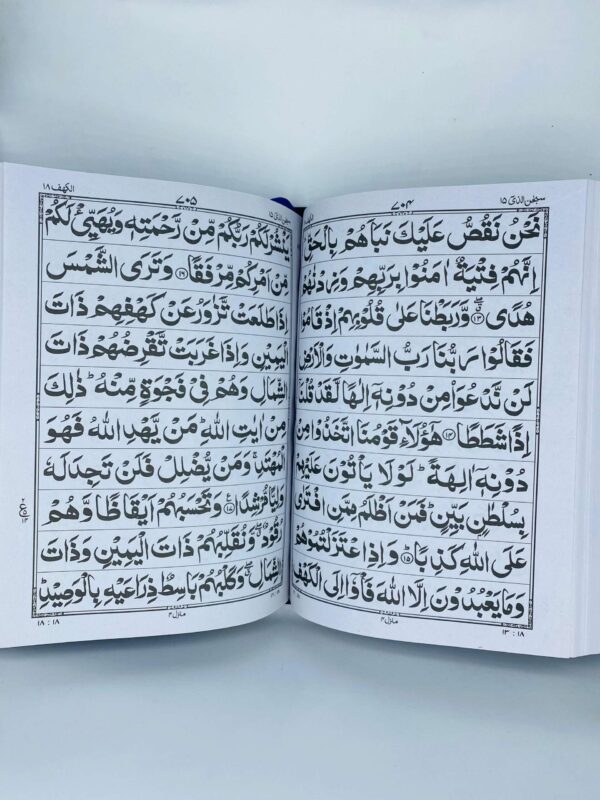 سبحٰن الذی ۱۵
۷۰۴
نَحْنُ نَقُصُّ عَلَیْكَ نَبَاَهُمْ بِالْحَقِّ ؕ
اِنَّهُمْ فِتْیَةٌ اٰمَنُوْا بِرَبِّهِمْ وَزِدْنٰهُمْ
هُدًی ۖۗ ﴿۱۳﴾ وَّرَبَطْنَا عَلٰی قُلُوْبِهِمْ اِذْ قَامُوْا
فَقَالُوْا رَبُّنَا رَبُّ السَّمٰوٰتِ وَالْاَرْضِ
لَنْ نَّدْعُوَا۟ مِنْ دُوْنِهٖۤ اِلٰهًا لَّقَدْ قُلْنَاۤ
اِذًا شَطَطًا ﴿۱۴﴾ هٰۤؤُلَآءِ قَوْمُنَا اتَّخَذُوْا مِنْ
دُوْنِهٖۤ اٰلِهَةً ؕ لَوْلَا یَاْتُوْنَ عَلَیْهِمْ
بِسُلْطٰنٍۭ بَیِّنٍ ؕ فَمَنْ اَظْلَمُ مِمَّنِ افْتَرٰی
عَلَی اللّٰهِ كَذِبًا ؕ ﴿۱۵﴾ وَاِذِ اعْتَزَلْتُمُوْهُمْ
وَمَا یَعْبُدُوْنَ اِلَّا اللّٰهَ فَاْوٗۤا اِلَی الْكَهْفِ
منزل ۴
۱۸ : ۱۳
الكهف ۱۸
۷۰۵
سبحٰن الذی ۱۵
یَنْشُرْلَكُمْ رَبُّكُمْ مِّنْ رَّحْمَتِهٖ وَیُهَیِّئْ لَكُمْ
مِّنْ اَمْرِكُمْ مِّرْفَقًا ﴿۱۶﴾ وَتَرَی الشَّمْسَ
اِذَا طَلَعَتْ تَّزٰوَرُ عَنْ كَهْفِهِمْ ذَاتَ
الْیَمِیْنِ وَاِذَا غَرَبَتْ تَّقْرِضُهُمْ ذَاتَ
الشِّمَالِ وَهُمْ فِیْ فَجْوَةٍ مِّنْهُ ؕ ذٰلِكَ
مِنْ اٰیٰتِ اللّٰهِ ؕ مَنْ یَّهْدِ اللّٰهُ فَهُوَ
الْمُهْتَدِ ۚ وَمَنْ یُّضْلِلْ فَلَنْ تَجِدَ لَهٗ
وَلِیًّا مُّرْشِدًا ﴿۱۷﴾ وَتَحْسَبُهُمْ اَیْقَاظًا وَّهُمْ
رُقُوْدٌ ۖۗ وَّنُقَلِّبُهُمْ ذَاتَ الْیَمِیْنِ وَذَاتَ
الشِّمَالِ ۖۗ وَكَلْبُهُمْ بَاسِطٌ ذِرَاعَیْهِ بِالْوَصِیْدِ ؕ
منزل ۴
۱۸ : ۱۸